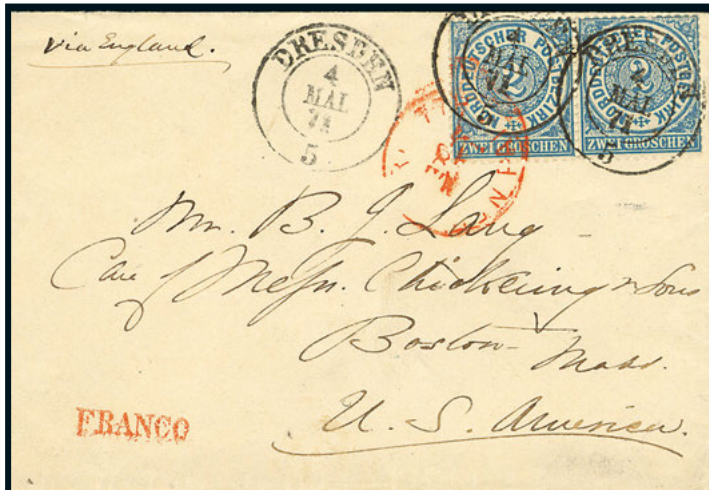 via England.
DRESDEN
4
MAI
71
5
NORDDEUTSCHER POSTBEZIRK
2
ZWEI GROSCHEN
DRESDEN
4
MAI
71
5
NORDDEUTSCHER POSTBEZIRK
2
ZWEI GROSCHEN
Mr. B. J. Lang
Care of Messrs. Chickering & Sons
Boston
Mass.
FRANCO
U. S. America.